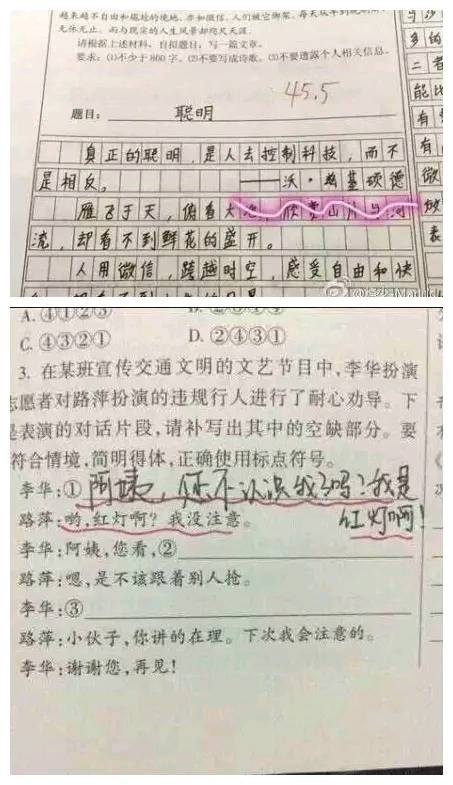 无休无止。而与现实的人生风景却咫尺天涯。
请根据上述材料，自拟题目，写一篇文章。
要求：(1)不少于800字。(2)不要写成诗歌。(3)不要透露个人相关信息。
45.5
题目：聪明
真正的聪明，是人去控制科技，而不
是相反。 ——沃·兹基硕德
雁飞于天，俯看大地，欣赏山川与河
流，却看不到鲜花的盛开。
人用微信，跨越时空，感受自由和快
多的
二者
能比
有
有
微
妙
表
A.④①②③
C.④③②① D.②④③①
3. 在某班宣传交通文明的文艺节目中，李华扮演
志愿者对路萍扮演的违规行人进行了耐心劝导。下
是表演的对话片段，请补写出其中的空缺部分。要
符合情境，简明得体，正确使用标点符号。
李华：①阿姨，您不认识我了吗？我是
红灯啊！
路萍：哟，红灯啊？我没注意。
李华：阿姨，您看，②
路萍：嗯，是不该跟着别人抢。
李华：③
路萍：小伙子，你讲的在理。下次我会注意的。
李华：谢谢您，再见！